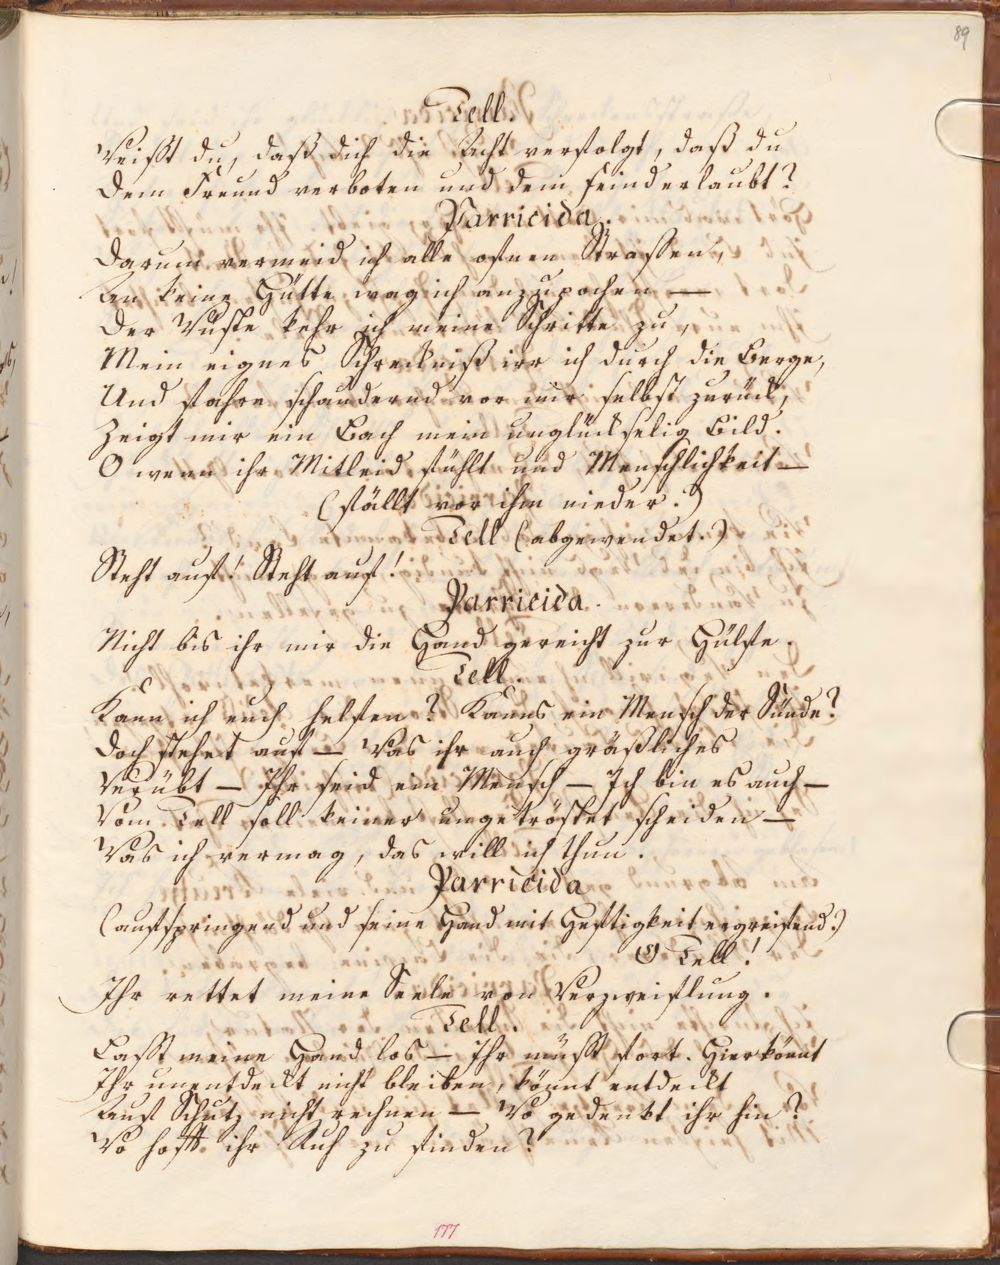 89
Tell.
Weißt du, daß dich die Acht verfolgt, daß du
Dem Freund verboten und dem Feind erlaubt?
Parricida.
Darum vermeid ich alle ofnen Strassen,
An keine Hütte wag ich anzupochen —
Der Wüste kehr ich meine Schritte zu,
Mein eignes Schreckniß irr ich durch die Berge,
Und fahre schaudernd vor mir selbst zurück,
Zeigt mir ein Bach mein unglückselig Bild.
O wenn ihr Mitleid fühlt und Menschlichkeit —
(fällt vor ihm nieder.)
Tell (abgewendet.)
Steht auf! Steht auf!
Parricida.
Nicht bis ihr mir die Hand gereicht zur Hülfe.
Tell.
Kann ich euch helfen? Kanns ein Mensch der Sünde?
Doch stehet auf — Was ihr auch gräßliches
Verübt — Ihr seid ein Mensch — Ich bin es auch —
Vom Tell soll keiner ungetröstet scheiden —
Was ich vermag, das will ich thun.
Parricida
(aufspringend und seine Hand mit Heftigkeit ergreifend.)
O Tell!
Ihr rettet meine Seele von Verzweiflung.
Tell.
Laßt meine Hand los — Ihr müßt fort. Hier könnt
Ihr unentdeckt nicht bleiben, könnt entdeckt
Auf Schutz nicht rechnen — Wo gedenkt ihr hin?
Wo hofft ihr Ruh zu finden?
177